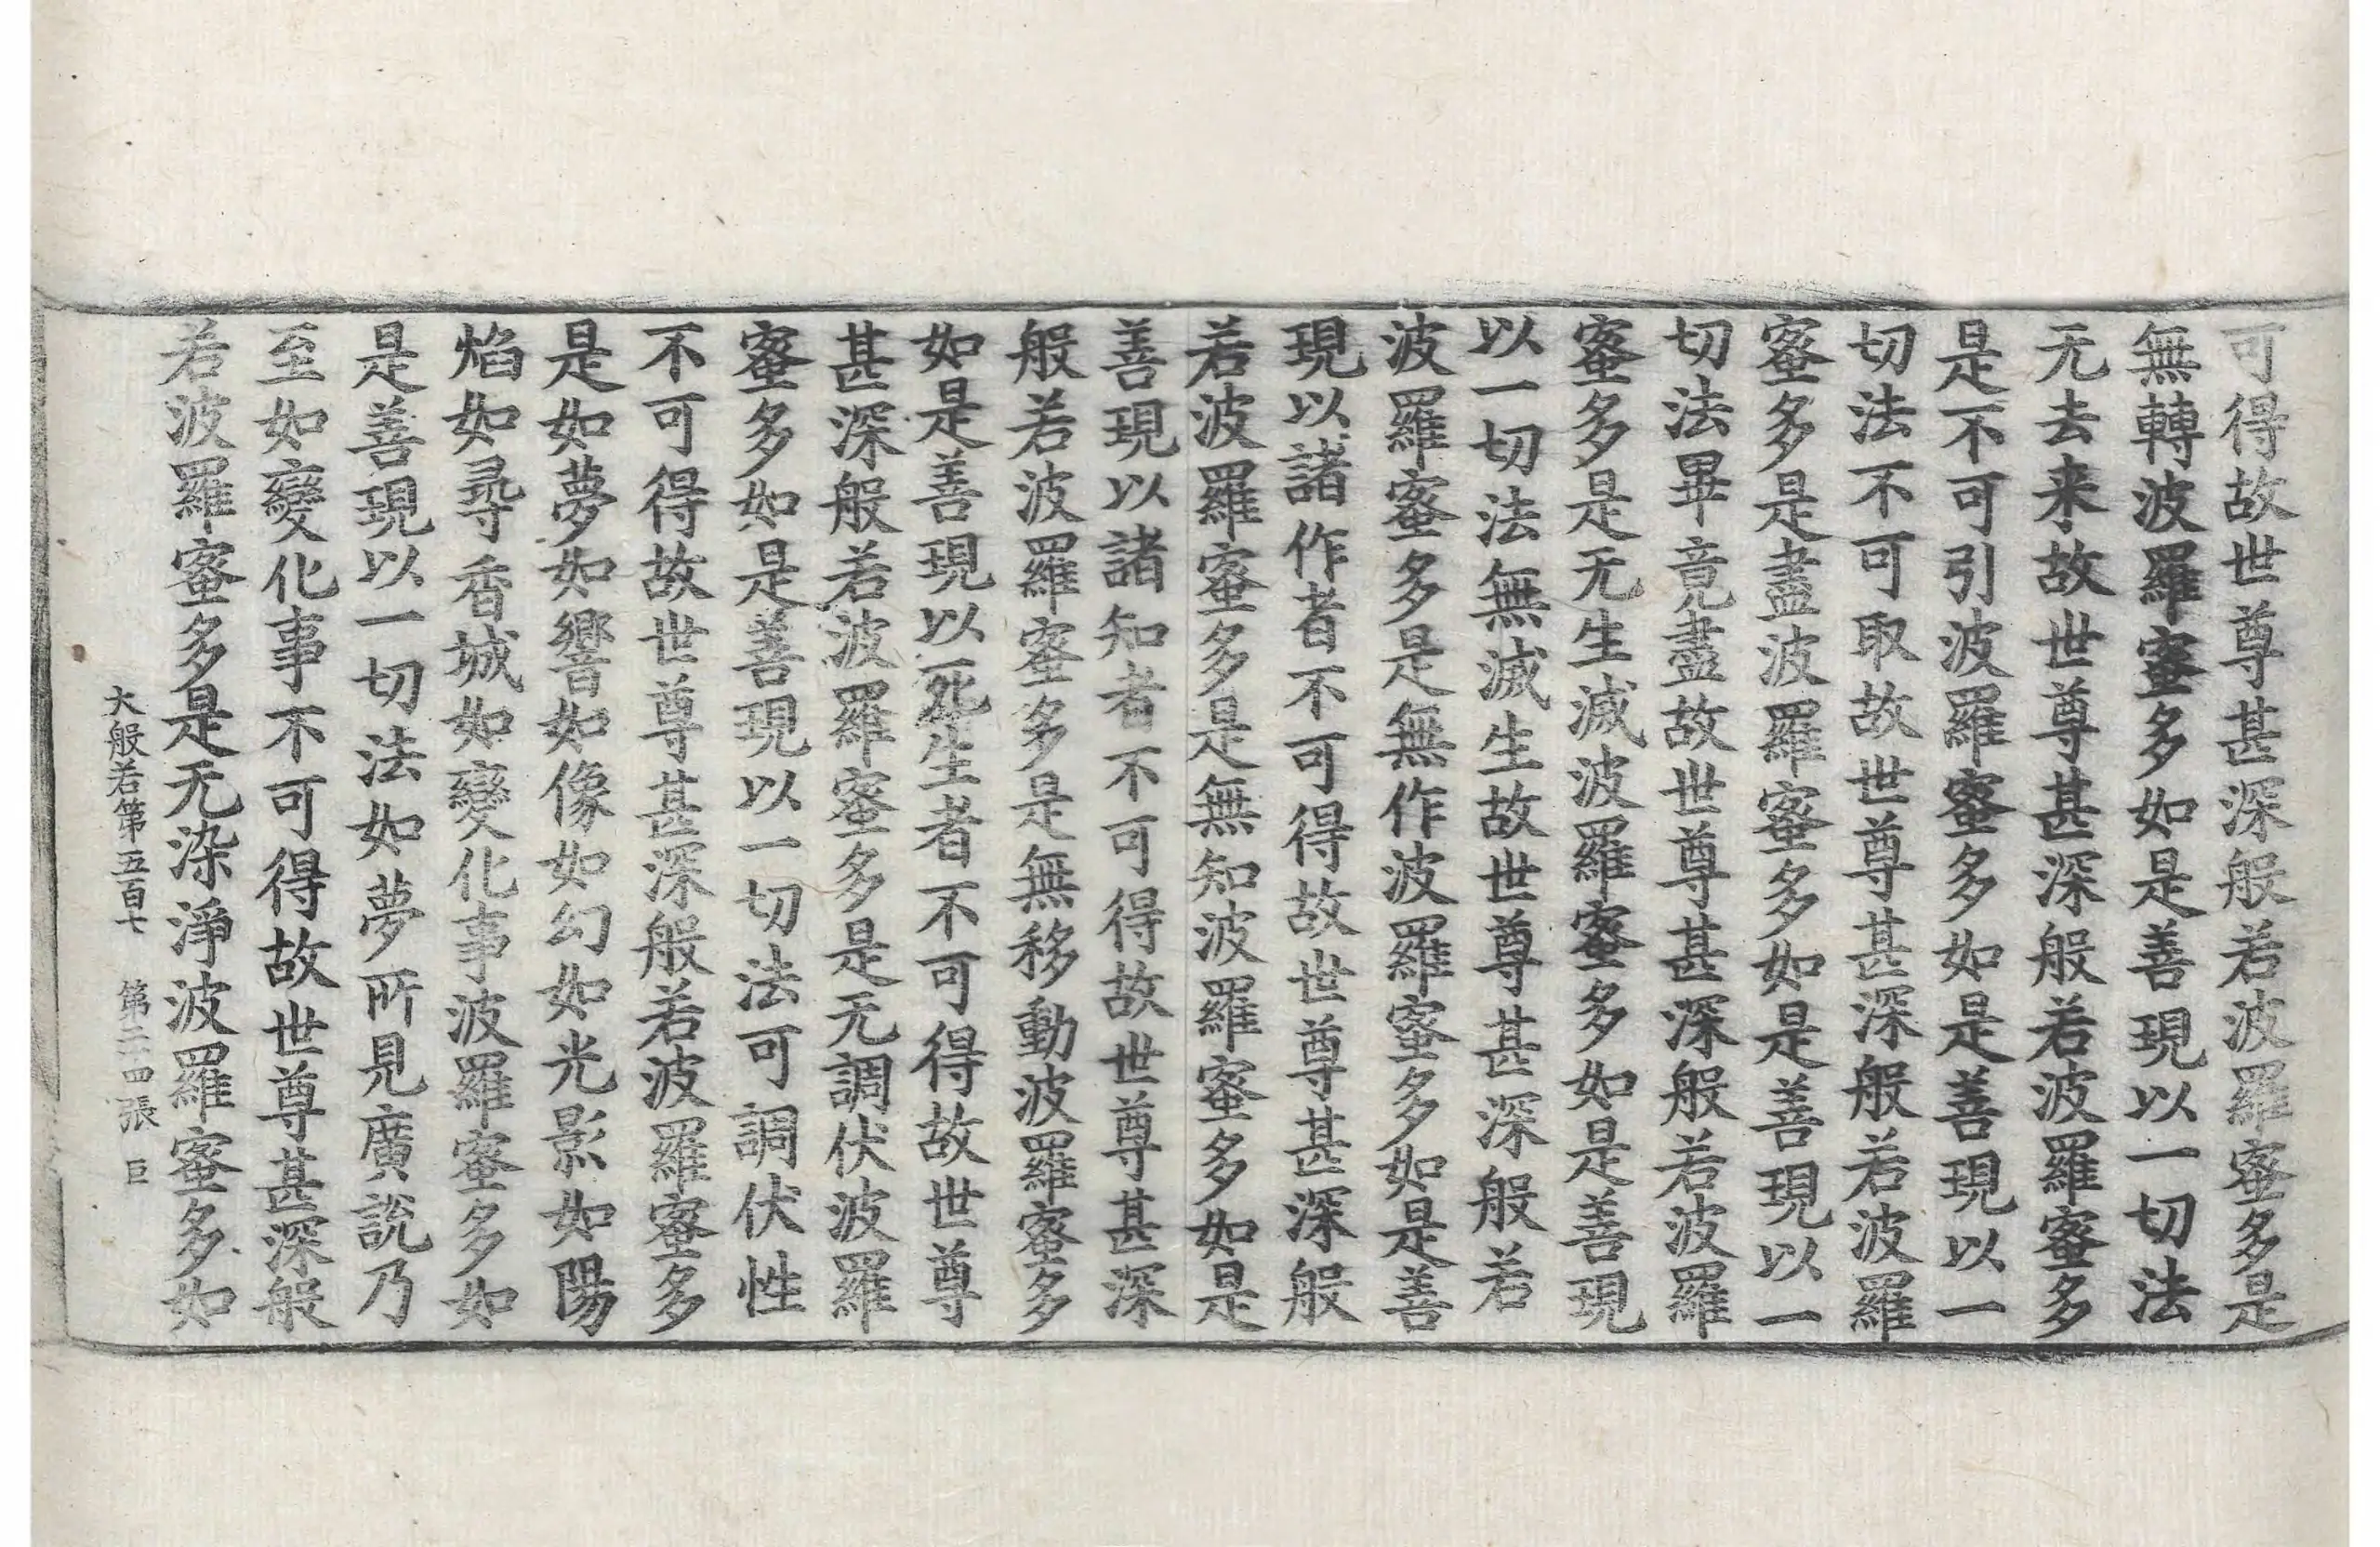 可得故世尊甚深般若波羅蜜多是
無轉波羅蜜多如是善現以一切法
无去来故世尊甚深般若波羅蜜多
是不可引波羅蜜多如是善現以一
切法不可取故世尊甚深般若波羅
蜜多是盡波羅蜜多如是善現以一
切法畢竟盡故世尊甚深般若波羅
蜜多是无生滅波羅蜜多如是善現
以一切法無滅生故世尊甚深般若
波羅蜜多是無作波羅蜜多如是善
現以諸作者不可得故世尊甚深般
若波羅蜜多是無知波羅蜜多如是
善現以諸知者不可得故世尊甚深
般若波羅蜜多是無移動波羅蜜多
如是善現以死生者不可得故世尊
甚深般若波羅蜜多是无調伏波羅
蜜多如是善現以一切法可調伏性
不可得故世尊甚深般若波羅蜜多
是如夢如響如像如幻如光影如陽
焰如尋香城如變化事波羅蜜多如
是善現以一切法如夢所見廣說乃
至如變化事不可得故世尊甚深般
若波羅蜜多是无染淨波羅蜜多如
大般若第五百七 第二十四張 巨